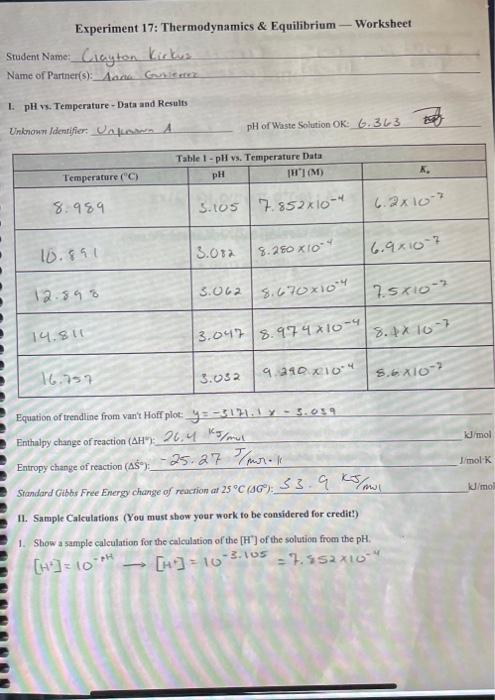 Experiment 17: Thermodynamics & Equilibrium — Worksheet
Student Name: Clayton Kirkus
Name of Partner(s): Anna
I. pH vs. Temperature - Data and Results
Unknown Identifier: Unknown A pH of Waste Solution OK: 6.363
Table 1 - pH vs. Temperature Data
Temperature (°C) pH [H⁺] (M) Kₐ
8.989 3.105 7.852x10⁻⁴ 6.2x10⁻⁷
10.891 3.082 8.280x10⁻⁴ 6.9x10⁻⁷
12.898 3.062 8.670x10⁻⁴ 7.5x10⁻⁷
14.811 3.047 8.974x10⁻⁴ 10⁻⁷
16.757 3.032 9.290x10⁻⁴ 8.6x10⁻⁷
Equation of trendline from van't Hoff plot: y=-3171.1x - 3.039
Enthalpy change of reaction (ΔH°): 26.4 KJ/mol kJ/mol
Entropy change of reaction (ΔS°): -25.27 J/mol·k J/mol·K
Standard Gibbs Free Energy change of reaction at 25 °C (ΔG°): 33.9 KJ/mol kJ/mol
II. Sample Calculations (You must show your work to be considered for credit!)
1. Show a sample calculation for the calculation of the [H⁺] of the solution from the pH.
[H⁺]=10⁻ᵖᴴ → [H⁺]=10⁻³·¹⁰⁵ =7.852x10⁻⁴